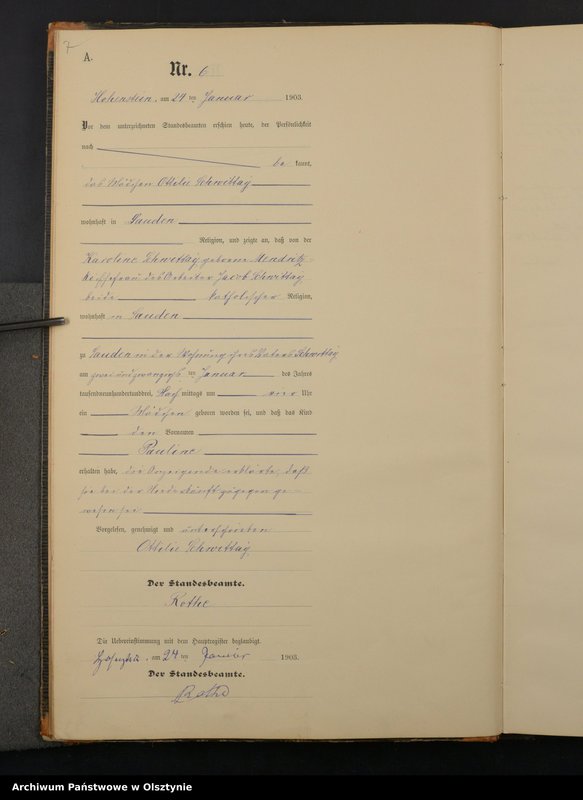 7
A.
Nr. 6
Hohenstein, am 24 ten Januar 1903.
Vor dem unterzeichneten Standesbeamten erschien heute, der Persönlichkeit
nach
be kannt,
das Mädchen Ottilie Schwittay
wohnhaft in Sauden
Religion, und zeigte an, daß von der
Karoline Schwittay geborene Mendritz
Ehefrau des Arbeiter Jacob Schwittay
beide katholischer Religion,
wohnhaft in Sauden
zu Sauden in der Wohnung ihres Vaters Schwittay
am zwei und zwanzigsten Januar des Jahres
tausendneunhundertunddrei, Nach mittags um vier Uhr
ein Mädchen geboren worden sei, und daß das Kind
den Vornamen
Pauline
erhalten habe, die Anzeigende erklärte, daß
sie bei der Niederkunft zugegen ge-
wesen sei
Vorgelesen, genehmigt und unterschrieben
Ottilie Schwittay
Der Standesbeamte.
Rothe
Die Uebereinstimmung mit dem Hauptregister beglaubigt.
Hohenstein, am 24 ten Januar 1903.
Der Standesbeamte.
Rothe
Archiwum Państwowe w Olsztynie